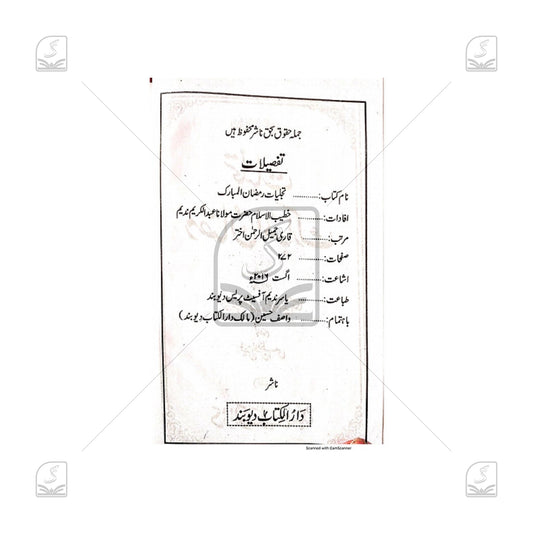 جملہ حقوق بحق ناشر محفوظ ہیں
تفصیلات
نام کتاب: ............ تجلیات رمضان المبارک
افادات: ............ خطیب الاسلام حضرت مولانا عبدالکریم ندیم
مرتب: ............ قاری جمیل الرحمٰن اختر
صفحات: ............ ۲۷۲
اشاعت: ............ اگست ۲۰۱۶ء
طباعت: ............ یاسر ندیم آفسیٹ پریس دیوبند
باہتمام: ............ واصف حسین (مالک دارالکتاب دیوبند)
ناشر
دارالکتاب دیوبند
Scanned with CamScanner